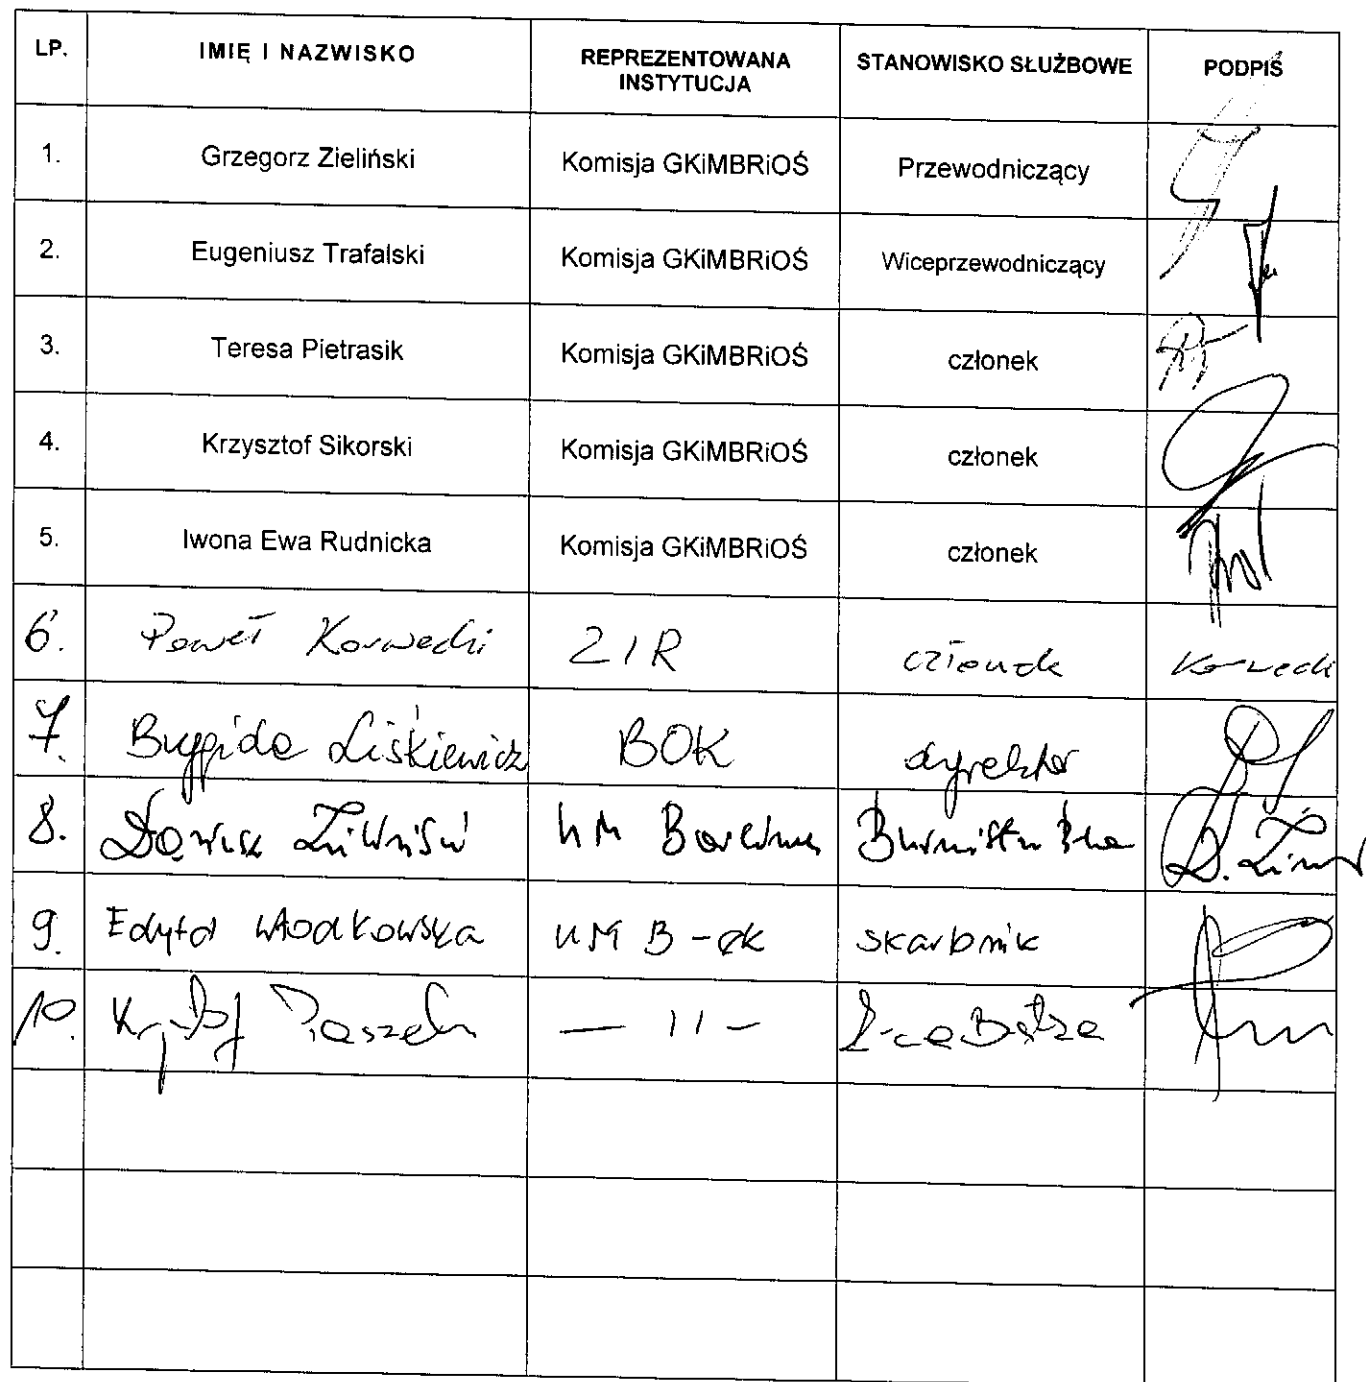 LP. IMIĘ I NAZWISKO REPREZENTOWANA INSTYTUCJA STANOWISKO SŁUŻBOWE PODPIS
1. Grzegorz Zieliński Komisja GKiMBRiOŚ Przewodniczący
2. Eugeniusz Trafalski Komisja GKiMBRiOŚ Wiceprzewodniczący
3. Teresa Pietrasik Komisja GKiMBRiOŚ członek
4. Krzysztof Sikorski Komisja GKiMBRiOŚ członek
5. Iwona Ewa Rudnicka Komisja GKiMBRiOŚ członek
6. Paweł ZIR członek
7. Brygida Liśkiewicz BOK dyrektor
8. Dariusz UM
9. Edyta Włodkowska UM B-ek skarbnik
10. — 11 —